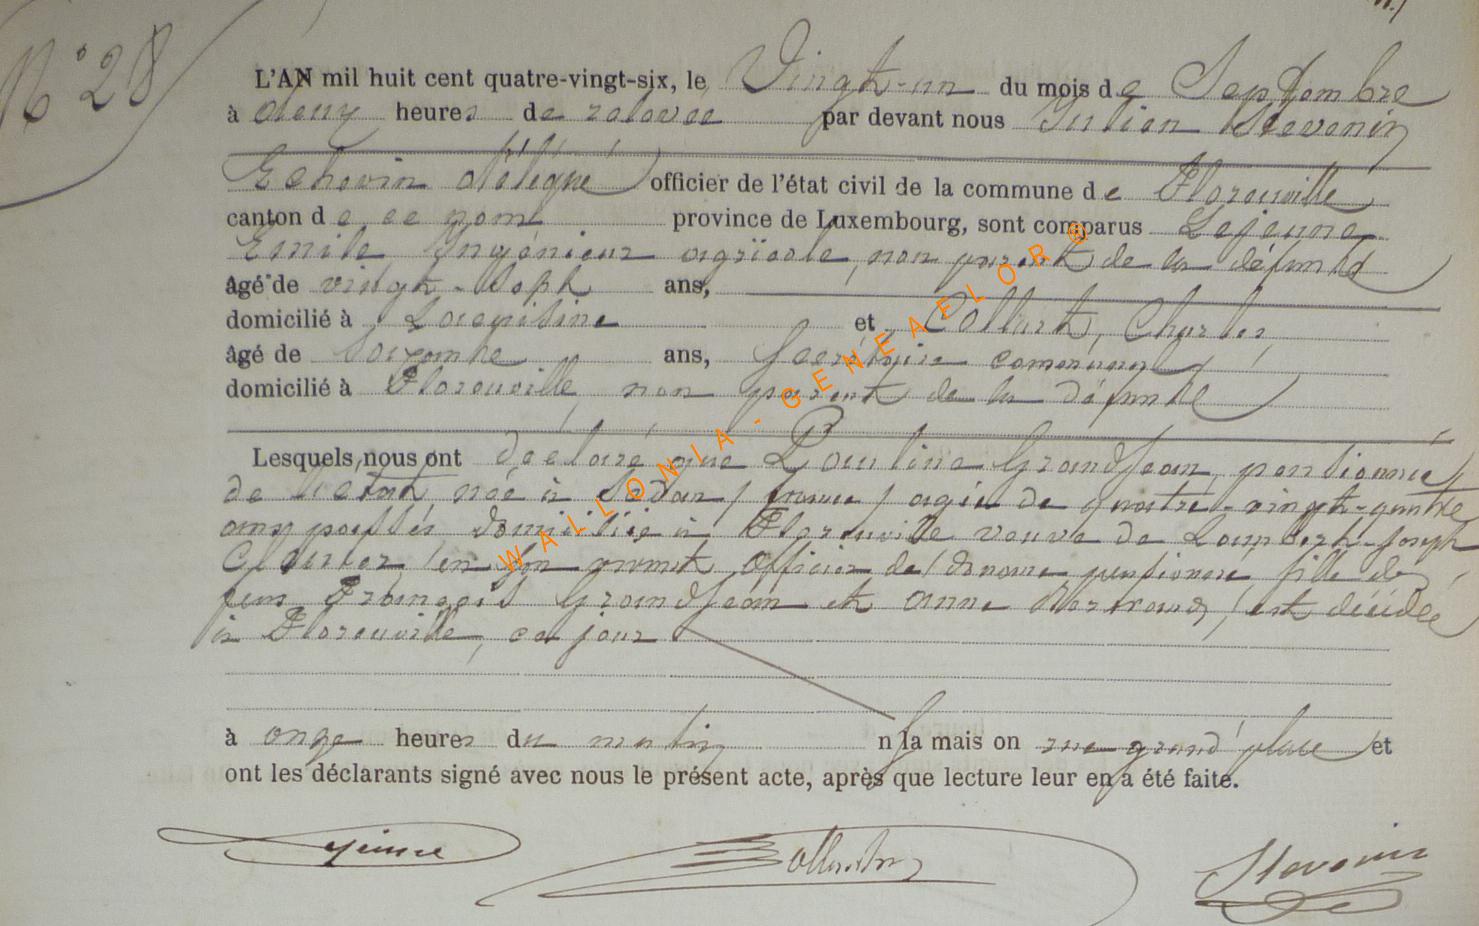 N° 28
L'AN mil huit cent quatre-vingt-six, le Vingt-un du mois de Septembre
à deux heures de relevée par devant nous Julien Stevenin
Echevin délégué officier de l'état civil de la commune de Florenville
canton de ce nom province de Luxembourg, sont comparus Lejeune
Emile Ingénieur agricole, non parent de la défunte
âgé de vingt-sept ans,
domicilié à Lacuisine et Collart, Charles,
âgé de soixante ans, Secrétaire communal
domicilié à Florenville, non parent de la défunte
Lesquels nous ont déclaré que Pauline Grandjean, pensionnée
de l'état, née à Sedan / france / agée de quatre-vingt-quatre
ans passés, domiciliée à Florenville veuve de Lambert-Joseph
en son vivant officier de douane pensionné fille de
feus François Grandjean et Anne, est décédée
à Florenville, ce jour
à onze heures du matin n la maison rue grand'place et
ont les déclarants signé avec nous le présent acte, après que lecture leur en a été faite.
Lejeune Collart Stevenin
WALLONIA-GENEAELOR ®